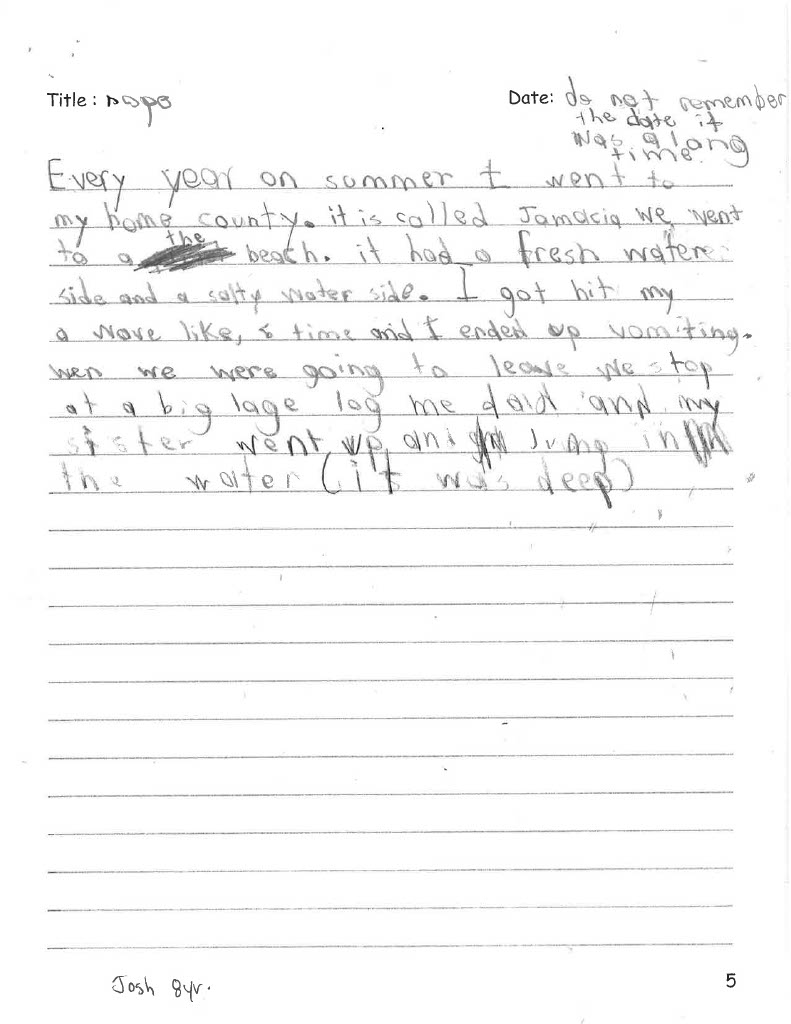 Title : nope
Date: do not remember
the date it
was a long
time
Every year on summer I went to
my home county. it is called Jamacia we went
the
to a beach. it had a fresh water
side and a salty water side. I got hit my
a wave like, 8 time and I ended up vomiting.
wen we were going to leave we stop
at a big lage log me dad and my
sister went up and Jump in
the water (it was deep)
Josh 8yr.
5